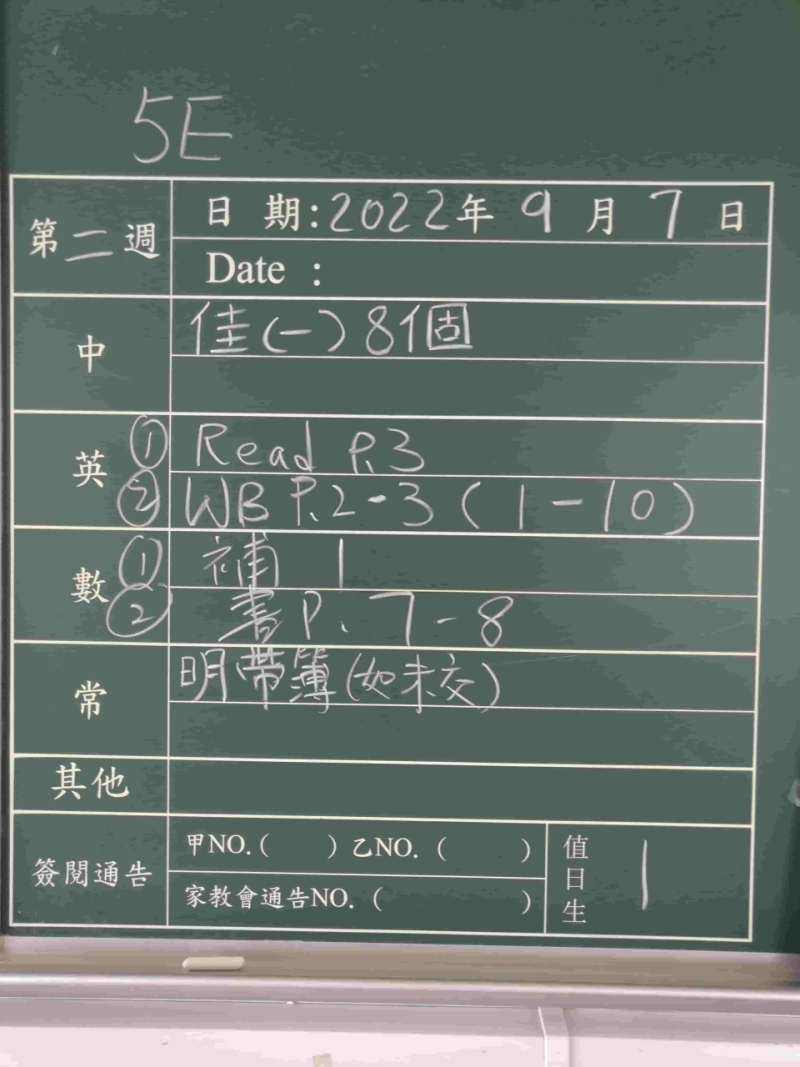 5E
第二週
日 期:2022年 9 月 7 日
Date :
中
佳(一)8個
英
① Read P.3
② WB P.2-3 (1-10)
數
① 補 1
② 書 P. 7-8
常
明帶簿(如未交)
其他
簽閱通告
甲NO.( ) 乙NO. ( )
家教會通告NO. ( )
值日生 1